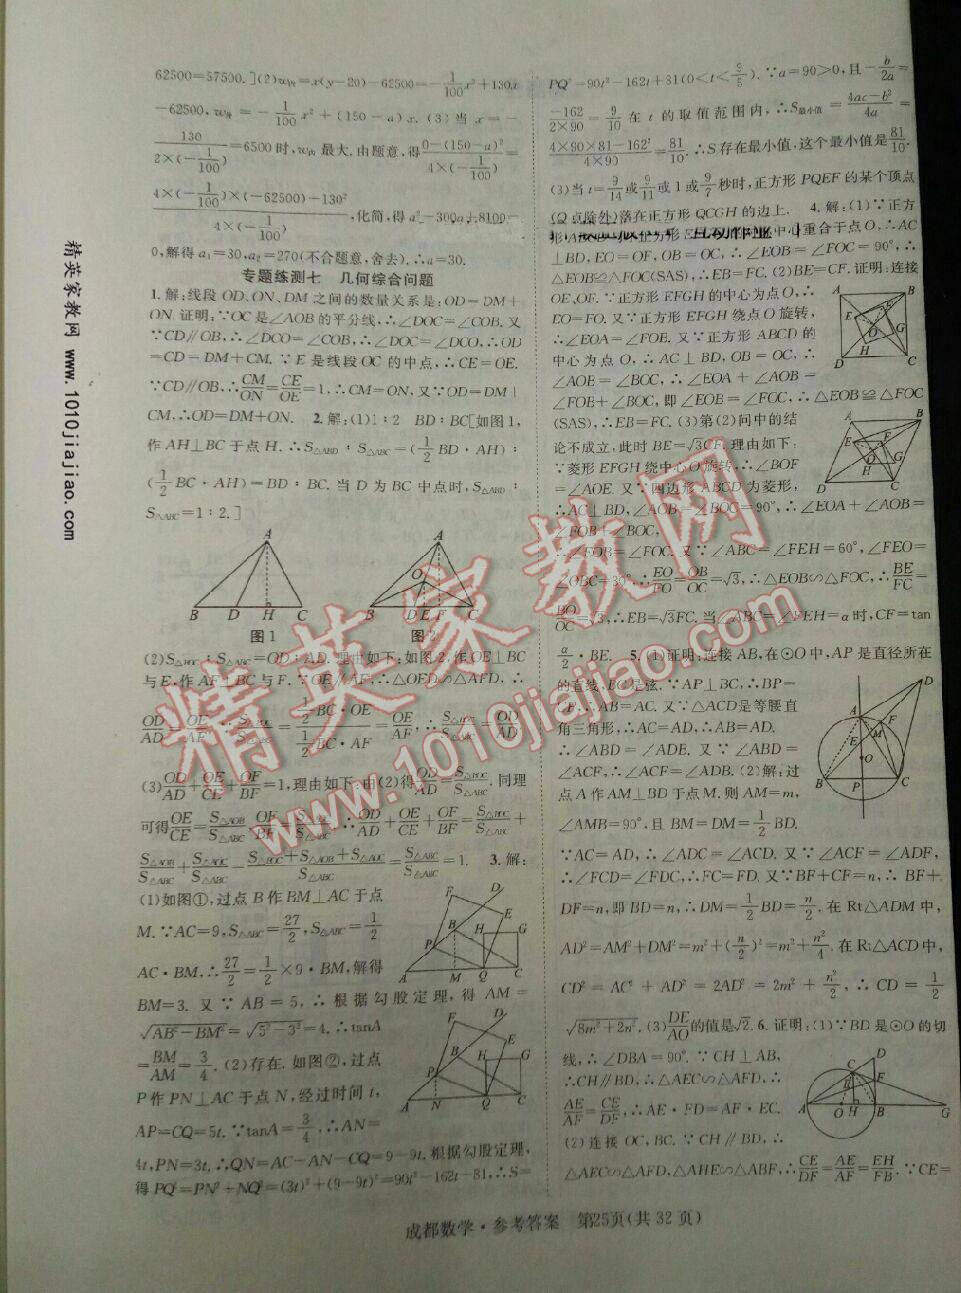 62500=57500.](2)w内=x(y-20)-62500=-1/100 x²+130x
-62500,w外=-1/100 x²+(150-a)x.(3)当 x=-
130/(2×(-1/100))=6500时,w内最大.由题意,得(0-(150-a)²)/(4×(-1/100))=
(4×(-1/100)×(-62500)-130²)/(4×(-1/100)),化简,得a²-300a+8100=
0,解得a₁=30,a₂=270(不合题意,舍去).∴a=30.
专题练测七 几何综合问题
1.解:线段OD、ON、DM之间的数量关系是:OD=DM+
ON.证明:∵OC是∠AOB的平分线,∴∠DOC=∠COB.又
∵CD∥OB,∴∠DCO=∠COB,∴∠DOC=∠DCO,∴OD
=CD=DM+CM.∵E是线段OC的中点,∴CE=OE.
∵CD∥OB,∴CM/ON=CE/OE=1,∴CM=ON,又∵OD=DM+
CM,∴OD=DM+ON. 2.解:(1)1∶2 BD∶BC[如图1,
作AH⊥BC于点H.∴S△ABD∶S△ABC=(1/2 BD·AH)∶
(1/2 BC·AH)=BD∶BC.当D为BC中点时,S△ABD∶
S△ABC=1∶2.]
A B D H C
图1
A O B D E F C
图2
(2)S△BOC∶S△ABC=OD∶AD.理由如下:如图2,作OE⊥BC
与E,作AF⊥BC与F.∵OE∥AF,∴△OED∽△AFD,∴
OD/AD=OE/AF.∵S△BOC/S△ABC=(1/2 BC·OE)/(1/2 BC·AF)=OE/AF,∴S△BOC/S△ABC=OD/AD.
(3)OD/AD+OE/CE+OF/BF=1,理由如下:由(2)得OD/AD=S△BOC/S△ABC.同理
可得OE/CE=S△AOB/S△ABC,OF/BF=S△AOC/S△ABC,∴OD/AD+OE/CE+OF/BF=S△BOC/S△ABC+
S△AOB/S△ABC+S△AOC/S△ABC=(S△BOC+S△AOB+S△AOC)/S△ABC=S△ABC/S△ABC=1. 3.解:
(1)如图①,过点B作BM⊥AC于点
M.∵AC=9,S△ABC=27/2,S△ABC=1/2
AC·BM,∴27/2=1/2×9·BM,解得
BM=3.又∵AB=5,∴根据勾股定理,得AM=
√(AB²-BM²)=√(5²-3²)=4.∴tanA
=BM/AM=3/4.(2)存在.如图②,过点
P作PN⊥AC于点N,经过时间t,
AP=CQ=5t.∵tanA=3/4,∴AN=
4t,PN=3t,∴QN=AC-AN-CQ=9-9t.根据勾股定理,
得PQ²=PN²+NQ²=(3t)²+(9-9t)²=90t²-162t-81,∴S=
PQ²=90t²-162t+81(0<t<9/5).∵a=90>0,且-b/2a=
-(-162)/(2×90)=9/10在t的取值范围内,∴S最小值=(4ac-b²)/4a=
(4×90×81-162²)/(4×90)=81/10.∴S存在最小值,这个最小值是81/10.
(3)当t=9/14或9/11或1或9/7秒时,正方形PQEF的某个顶点
(Q点除外)落在正方形QCGH的边上. 4.解:(1)∵正方
中心重合于点O,∴AC
⊥BD,EO=OF,OB=OC,∴∠EOB=∠FOC=90°,∴
△EOB≌△FOC(SAS),∴EB=FC.(2)BE=CF.证明:连接
OE,OF.∵正方形EFGH的中心为点O,∴
EO=FO.又∵正方形EFGH绕点O旋转,
∴∠EOA=∠FOE.又∵正方形ABCD的
中心为点O,∴AC⊥BD,OB=OC,∴
∠AOB=∠BOC,∴∠EOA+∠AOB=
∠FOE+∠BOC,即∠EOB=∠FOC,∴△EOB≌△FOC
(SAS),∴EB=FC.(3)第(2)问中的结
论不成立,此时BE=√3CF.理由如下:
∵菱形EFGH绕中心O旋转,∴∠EOF
=∠AOE.又∵四边形ABCD为菱形,
∴AC⊥BD,∠AOB=∠BOC=90°,∴∠EOA+∠AOB=
∠FOB+∠BOC,
∴∠EOB=∠FOC.又∵∠ABC=∠FEH=60°,∠FEO=
∠OBC=30°,∴EO/FO=OB/OC=√3,∴△EOB∽△FOC,∴BE/FC=
BO/OC=√3,∴EB=√3FC.当∠ABC=∠FEH=α时,CF=tan
α/2·BE. 5.(1)证明:连接AB,在⊙O中,AP是直径所在
的直线,BC是弦.∵AP⊥BC,∴BP=
CP,∴AB=AC.又∵△ACD是等腰直
角三角形,∴AC=AD,∴AB=AD.
∴∠ABD=∠ADE.又∵∠ABD=
∠ACF,∴∠ACF=∠ADB.(2)解:过
点A作AM⊥BD于点M.则AM=m,
∠AMB=90°,且BM=DM=1/2 BD.
∵AC=AD,∴∠ADC=∠ACD.又∵∠ACF=∠ADF,
∴∠FCD=∠FDC,∴FC=FD.又∵BF+CF=n,∴BF+
DF=n,即BD=n,∴DM=1/2 BD=n/2.在Rt△ADM中,
AD²=AM²+DM²=m²+(n/2)²=m²+n²/4.在Rt△ACD中,
CD²=AC²+AD²=2AD²=2m²+n²/2,∴CD=1/2
√(8m²+2n²).(3)DE/AO的值是√2. 6.证明:(1)∵BD是⊙O的切
线,∴∠DBA=90°.∵CH⊥AB,
∴CH∥BD,∴△AEC∽△AFD,∴
AE/AF=CE/DF,∴AE·FD=AF·EC.
(2)连接OC,BC.∵CH∥BD,∴
△AEC∽△AFD,△AHE∽△ABF,∴CE/DF=AE/AF=EH/FB.∵CE=
成都数学·参考答案 第25页(共32页)
精英家教网 www.1010jiajiao.com
精英家教网
www.1010jiajiao.com